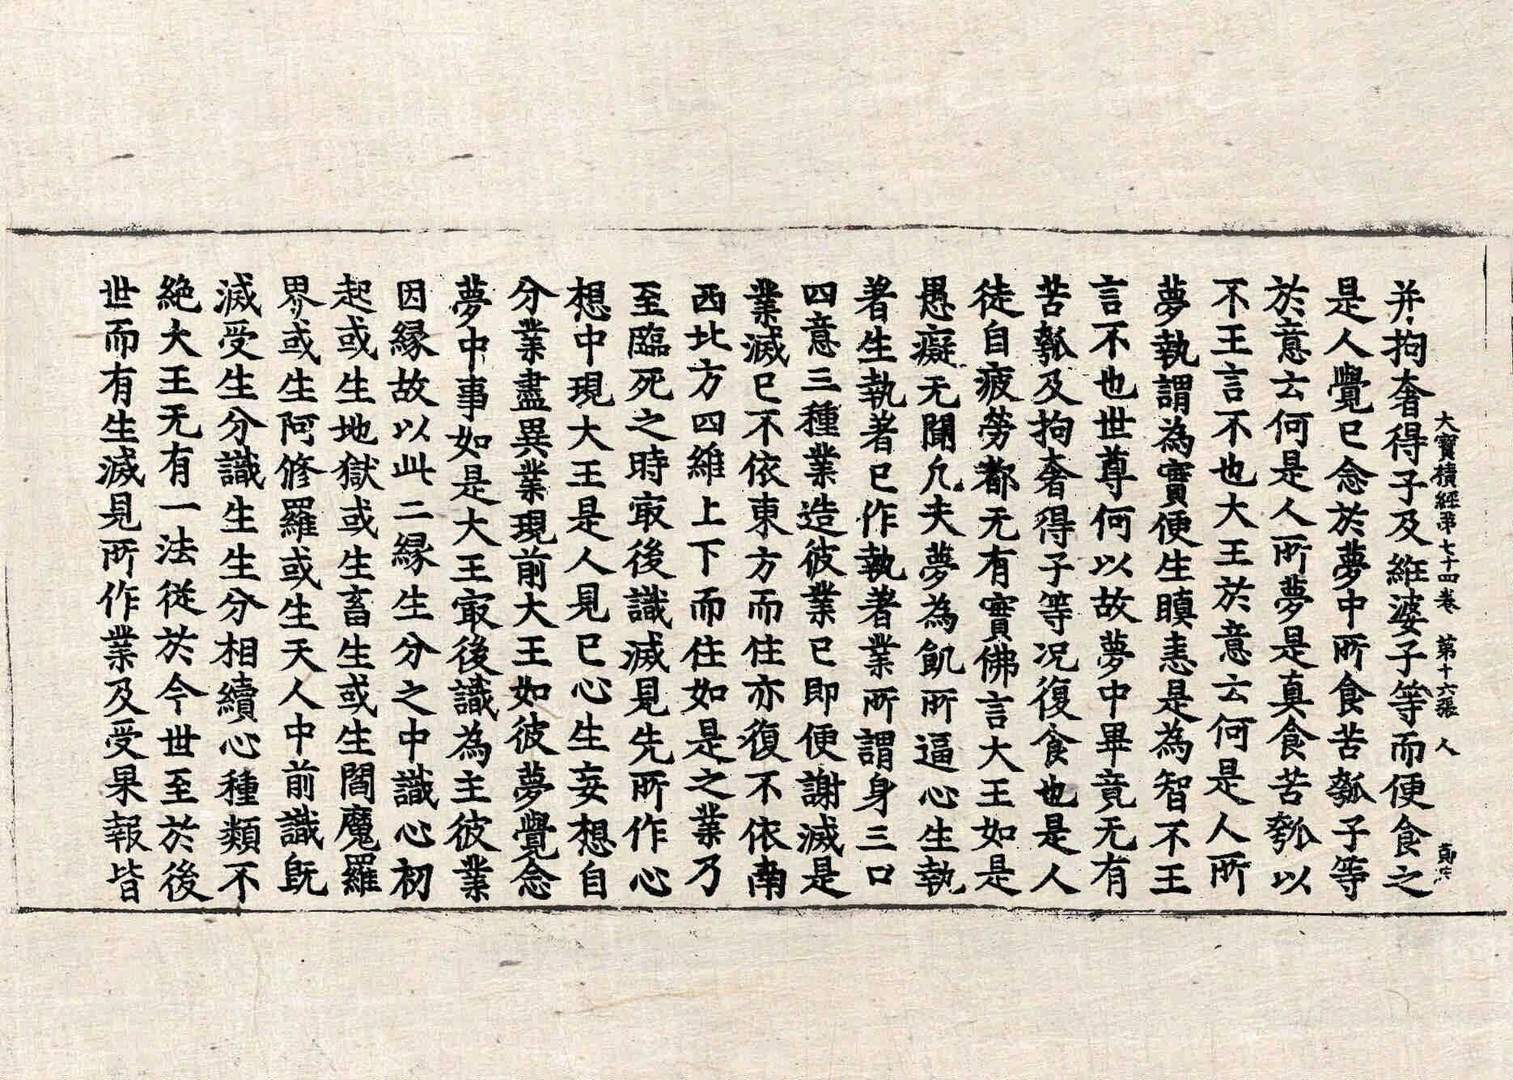 大寶積經第七十四卷 第十六張 人
并拘奢得子及維婆子等而便食之
是人覺已念於夢中所食苦瓠子等
於意云何是人所夢是真食苦瓠以
不王言不也大王於意云何是人所
夢執謂為實便生瞋恚是為智不王
言不也世尊何以故夢中畢竟无有
苦瓠及拘奢得子等况復食也是人
徒自疲勞都无有實佛言大王如是
愚癡无聞凢夫夢為飢所逼心生執
著生執著已作執著業所謂身三口
四意三種業造彼業已即便謝滅是
業滅已不依東方而住亦復不依南
西北方四維上下而住如是之業乃
至臨死之時㝡後識滅見先所作心
想中現大王是人見已心生妄想自
分業盡異業現前大王如彼夢覺念
夢中事如是大王㝡後識為主彼業
因縁故以此二縁生分之中識心初
起或生地獄或生畜生或生閻魔羅
界或生阿修羅或生天人中前識既
滅受生分識生生分相續心種類不
絶大王无有一法從於今世至於後
世而有生滅見所作業及受果報皆